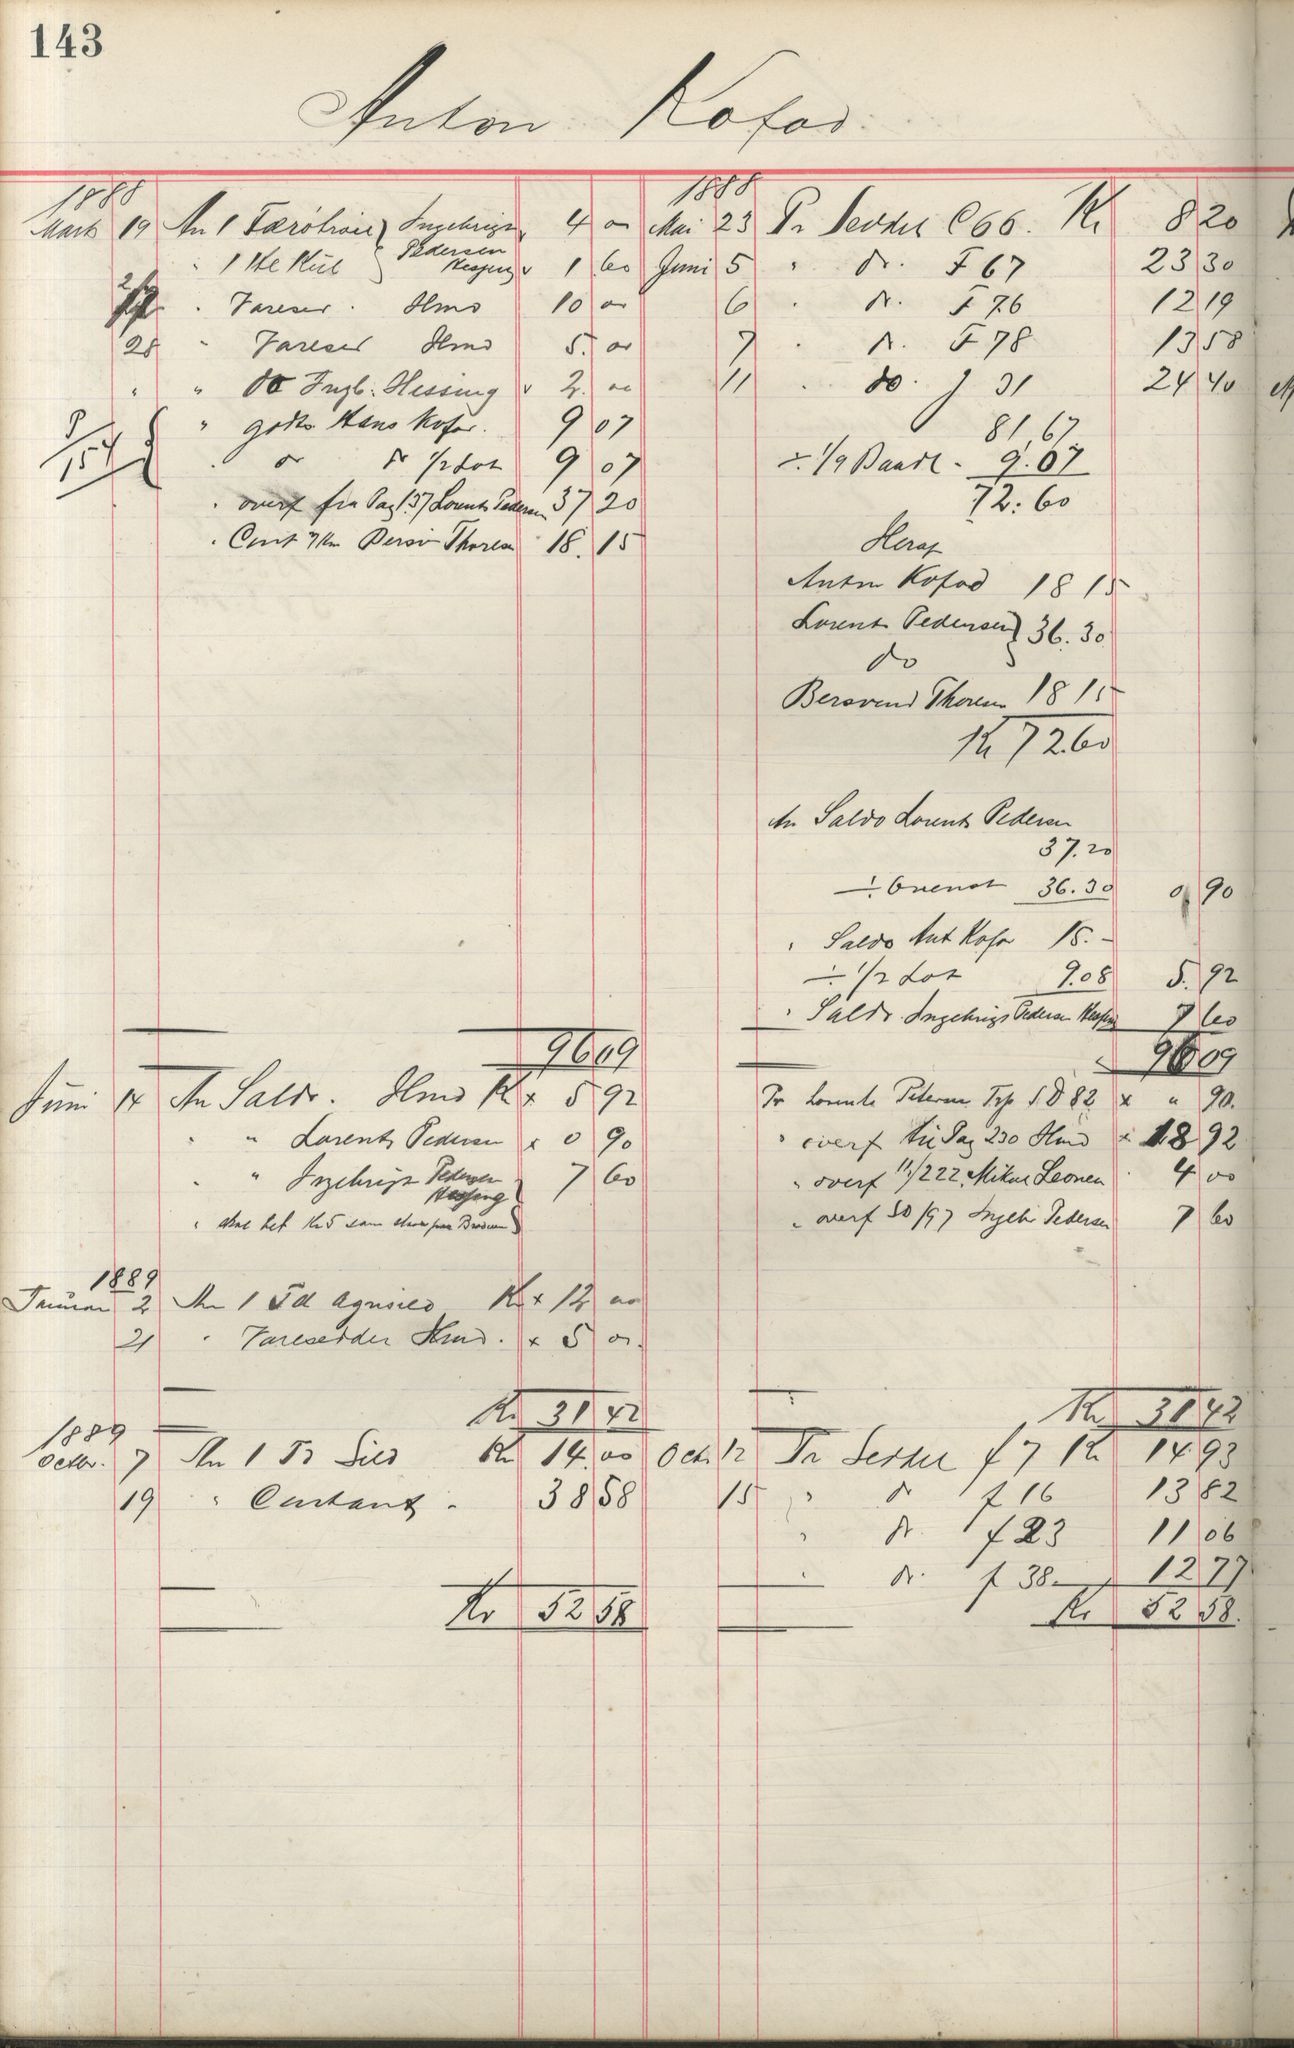 143
Anton Kofod
1888
Marts 19 An 1 Færötröie Ingebrigt 4 00
" 1 Hl Kul Pedersen Hessing 1 60
" Vareser. Hmd 10 00
28 " Varesed Hmd 5. 00
" " do Ingb. Hessing 2. 00
P/154 " godts Hans Kofod. 9 07
" do do 1/2 Lot 9 07
" overf fra Pag 137 Lorents Pedersen 37 20
" Cont Thoresen 18. 15
9609
Juni 14 An Saldo. Hmd Kr x 5 92
" " Lorents Pedersen x 0 90
" " Ingebrigt Pedersen Hessing 7 60
" Kr 5 som
1889
Januar 2 An 1 Td Agnsild Kr x 12 00
21 " Varesedder Hmd. x 5 00.
Kr 31 42
1889
Octbr. 7 An 1 Tr Sild Kr 14. 00
19 " Contant " 38 58
Kr 52 58
1888
Mai 23 Pr Seddel C 66. Kr 8 20
Juni 5 " do. F 67 23 30
6 " do. F 76 12 19
7 " do. F 78 13 58
11 " do. f 31 24 40
81,67
÷ 1/9 Baadl - 9.07
72.60
Heraf
Anton Kofod 18 15
Lorents Pedersen } 36.30
do
Bersvend Thoresen 18 15
Kr 72.60
An Saldo Lorents Pedersen
37.20
÷ Ovenst 36.30 0 90
" Saldo Ant Kofod 15.-
÷ 1/2 Lot 9.08 5. 92
" Saldo Ingebrigt Pedersen Hessing 7 60
9609
Pr Lorents Petersen S D 82 x " 90.
" overf til Pag 230 Hmd x 18 92
" overf 11/222. Mikal Leonsen 4 00
" overf 50/97 Ingeb Pedersen 7 60
Kr 31 42
Oct. 12 Pr Seddel f 7 Kr 14 93
15 " do f 16 13 82
" do. f 23 11 06
" do. f 38 12 77
Kr 52 58.